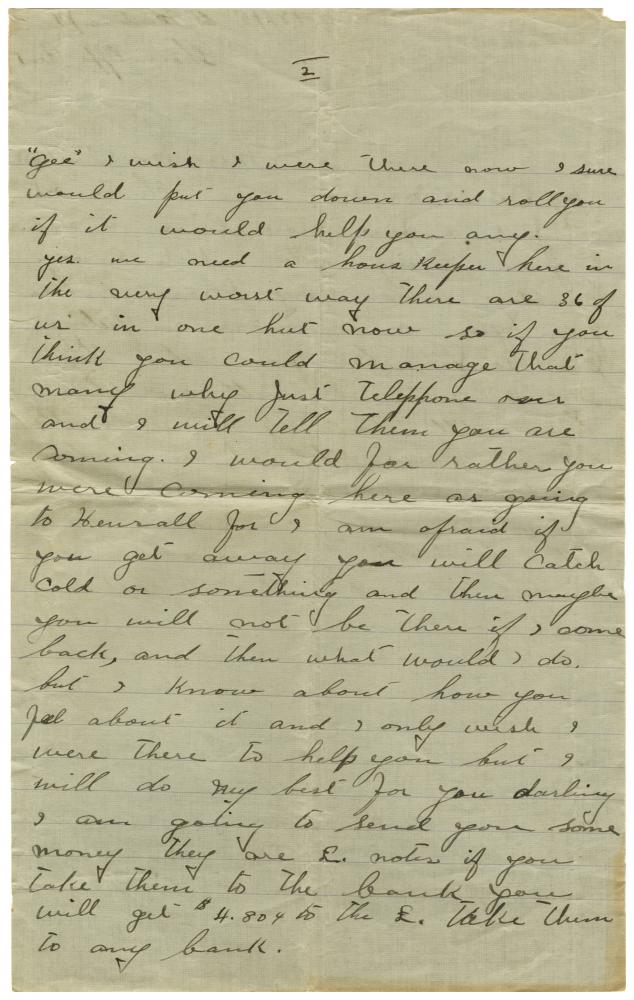 2
"Gee" I wish I were there now I sure
would put you down and roll you
if it would help you any.
yes. we need a hous Keeper here in
the very worst way there are 36 of
us in one hut now so if you
think you could manage that
many why Just Telephone over
and I will Tell Them you are
coming. I would far rather you
were coming here as going
to Hensall for I am afraid if
you get away you will catch
cold or something and then maybe
you will not be there if I come
back, and then what would I do.
but I Know about how you
feel about it and I only wish I
were there to help you but I
will do my best for you darling
I am going to send you some
money they are £. notes if you
take them to the bank you
will get $4.80¢ to the £. take them
to any bank.